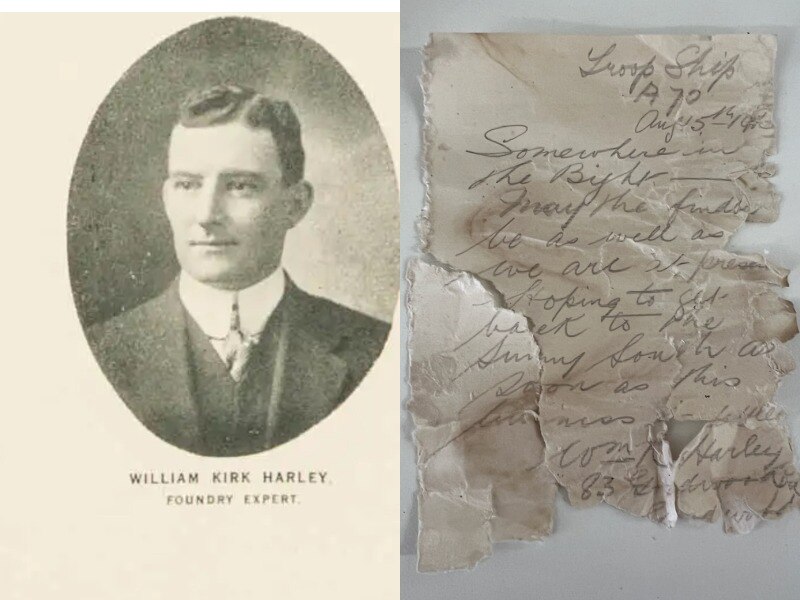 WILLIAM KIRK HARLEY.
FOUNDRY EXPERT.
Troop Ship
A 70
Aug 15th
Somewhere in
the Bight —
May the finder
be as well as
we are at present
Hoping to get
back to the
Sunny South as
soon as this
Wm K Harley
83